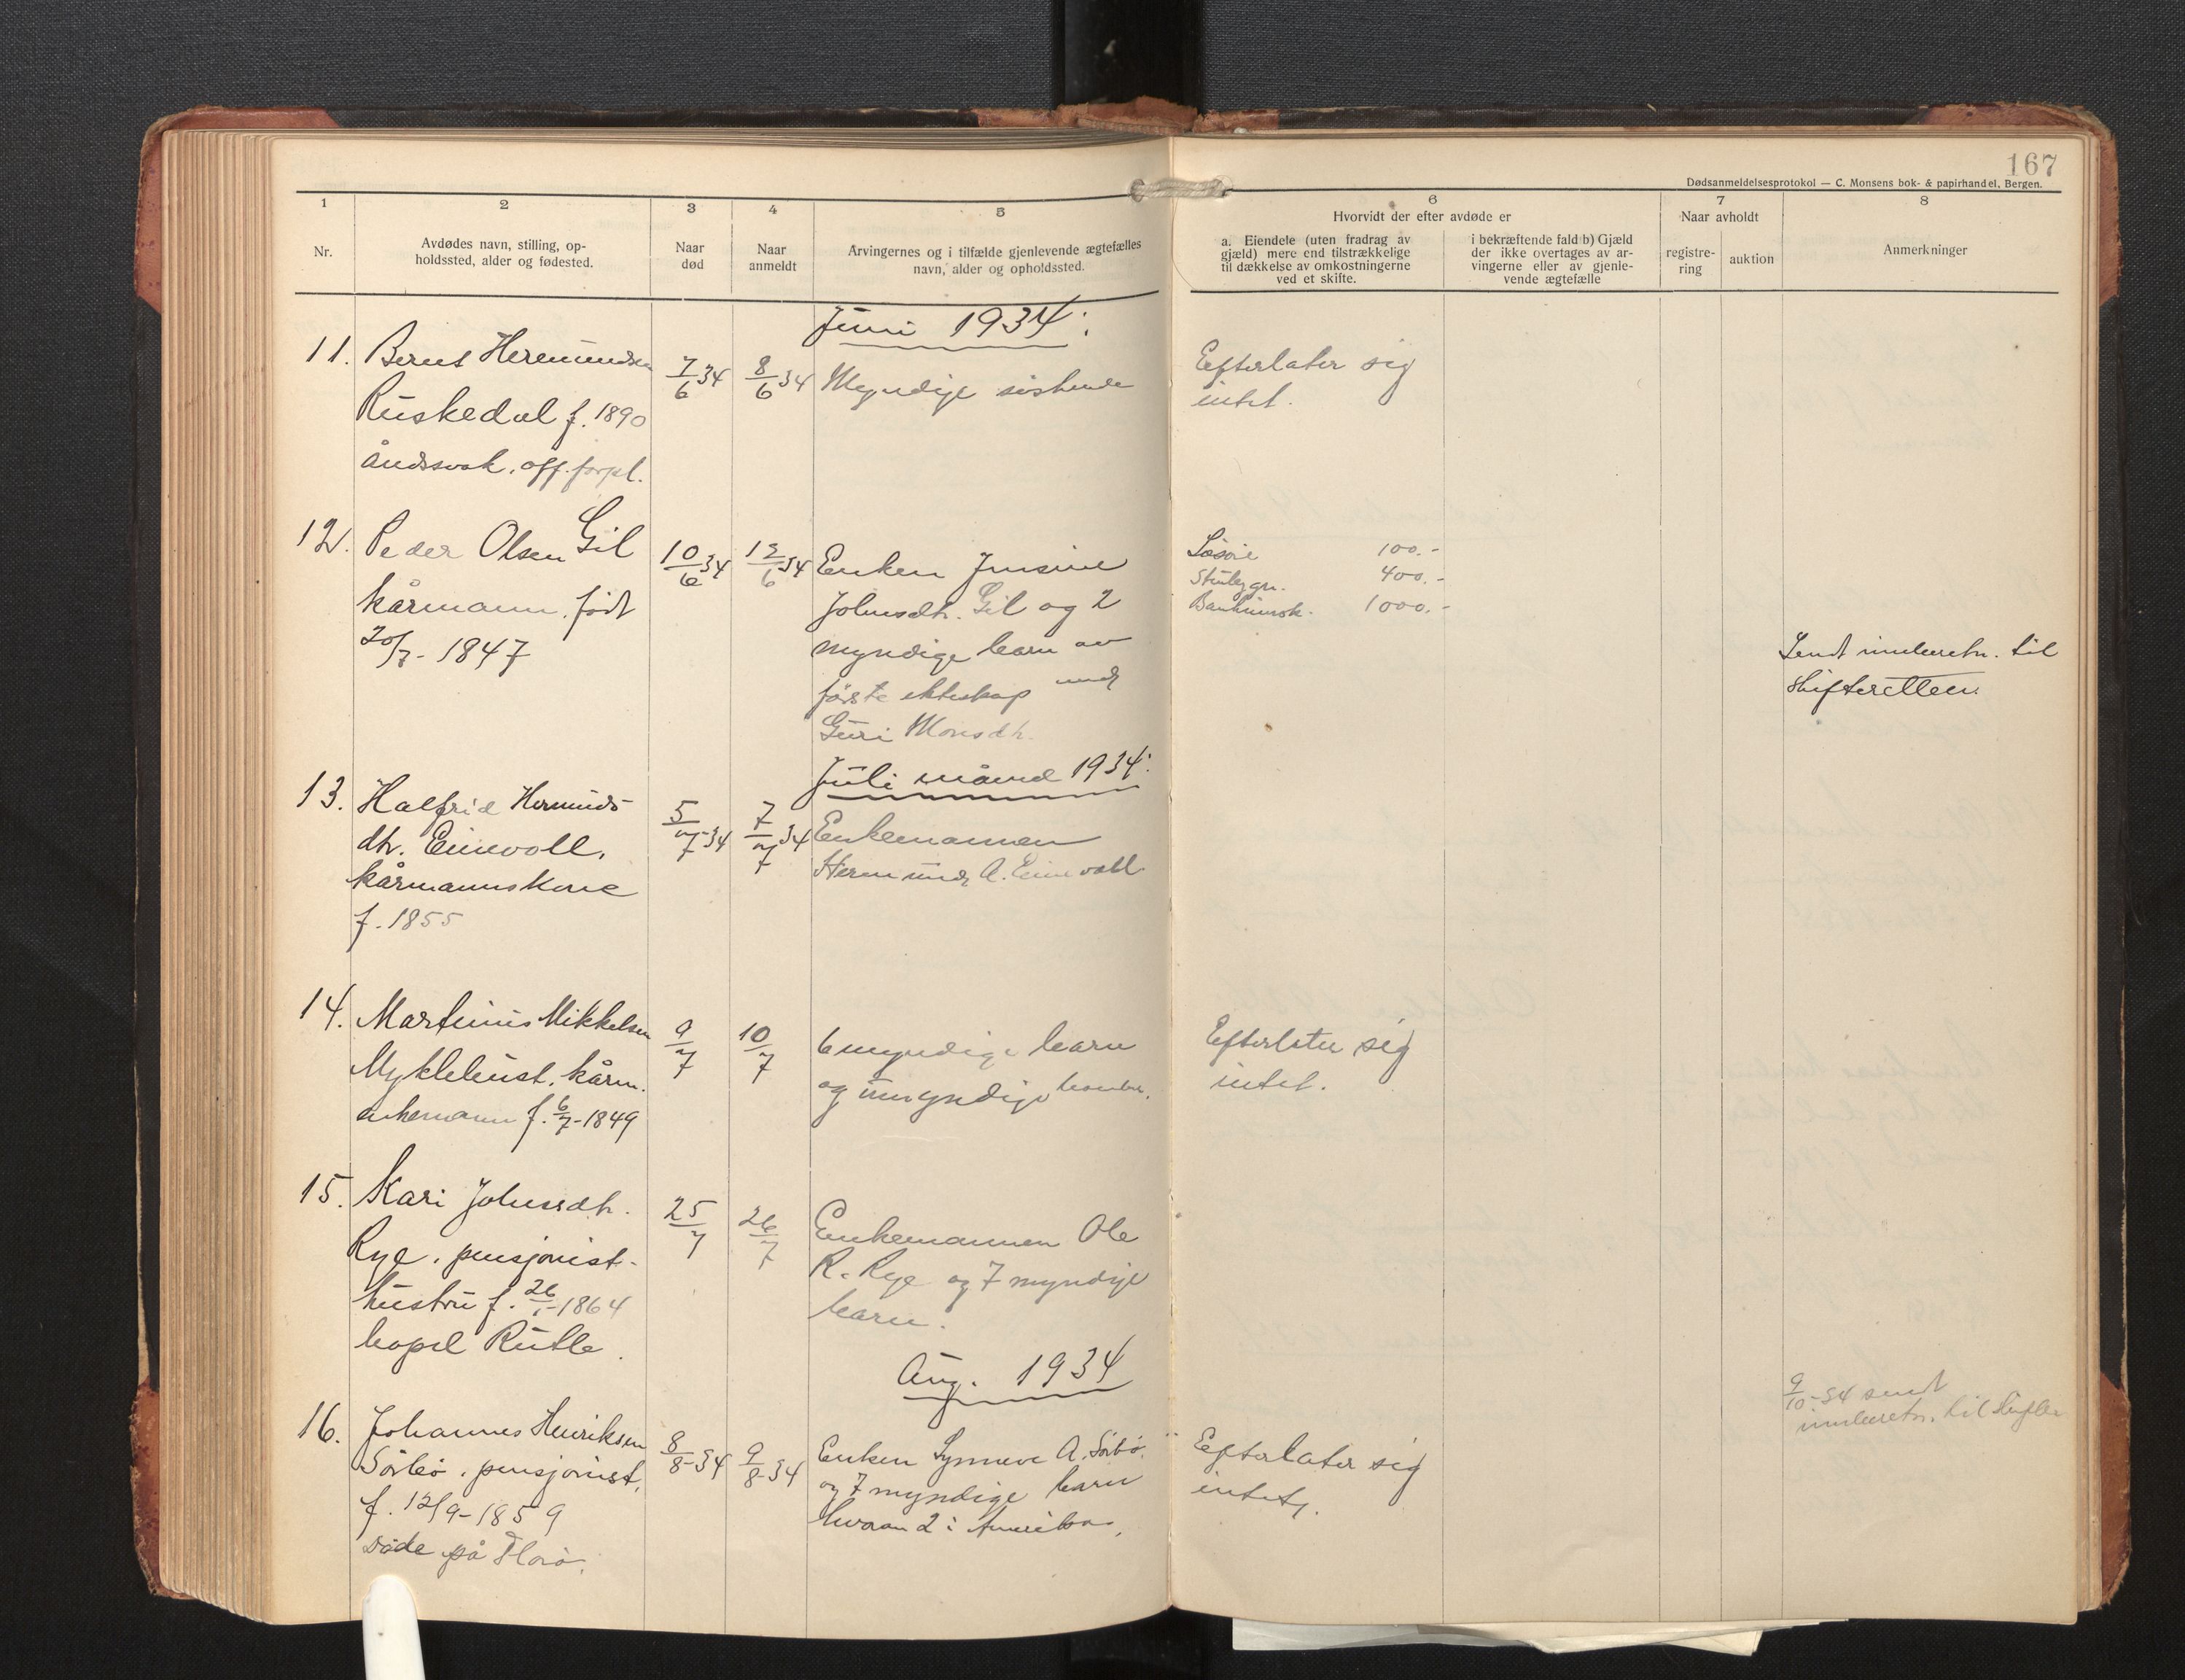 167
Dødsanmeldelsesprotokol — C. Monsens bok- & papirhandel, Bergen.
1
2
3
4
5
6
7
8
Nr.
Avdødes navn, stilling, op-
holdssted, alder og fødested.
Naar
død
Naar
anmeldt
Arvingernes og i tilfælde gjenlevende ægtefælles
navn, alder og opholdssted.
Hvorvidt der efter avdøde er
a. Eiendele (uten fradrag av
gjæld) mere end tilstrækkelige
til dækkelse av omkostningerne
ved et skifte.
i bekræftende fald b) Gjæld
der ikke overtages av ar-
vingerne eller av gjenle-
vende ægtefælle
Naar avholdt
registre-
ring
auktion
Anmerkninger
Juni 1934:
11. Bernt Heremundsen
Ruskedal f. 1890
åndssvak, off. forpl.
7/6 34
8/6 34
Myndige søskende
Efterlater sig
intet.
12. Peder Olsen Gil
kårmann, født
20/7- 1847
10/6 34
12/6 34
Enken Jensine
Johnsdtr. Gil og 2
myndige barn av
første ekteskap med
Guri Monsdtr.
Løsøre 100.-
400.-
Bankinnsk. 1000.-
Sendt innberetn. til
skifteretten
Juli måned 1934:
13. Halfrid Hermunds-
dtr. Einevoll,
kårmannskone
f. 1855
5/7-34
7/7 34
Enkemannen
Heremund A. Einevoll
14. Martinus Mikkelsen
Myklebust, kårm.
enkemann f. 6/7-1849
9/7
10/7
6 myndige barn
og umyndige
Efterlater sig
intet.
15. Kari Johnsdtr.
Rye, pensjonist-
hustru f. 26/1-1864
bopel Rutle.
25/7
26/7
Enkemannen Ole
R. Rye og 7 myndige
barn.
Aug. 1934
9/10-34 sendt
innberetn. til skifter
16. Johannes Henriksen
Sørbø, pensjonist,
f. 12/9-1859
døde på Florø.
8/8-34
9/8-34
Enken Synneve A. Sørbø
og 7 myndige barn
hvorav 2 i Amerika,
Efterlater sig
intet.